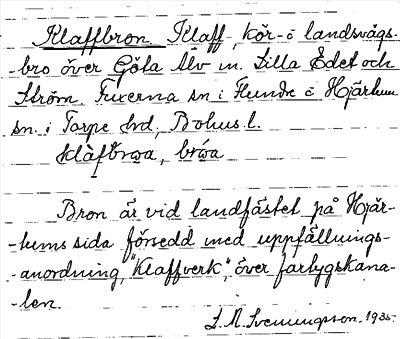 Klaffbron Klaff, kör- o landsvägs-
-bro över Göta Älv m. Lilla Edet och
Ström. Fuxerna sn i Flundre o Hjärtum
sn. i Torpe hd, Bohusl.
klàfbrωa, brωa
Bron är vid landfästet på Hjär-
-tums sida försedd med uppfällnings-
-anordning, "Klaffverk", över fartygskana-
-len.
S. A. Svenningsson. 1935.